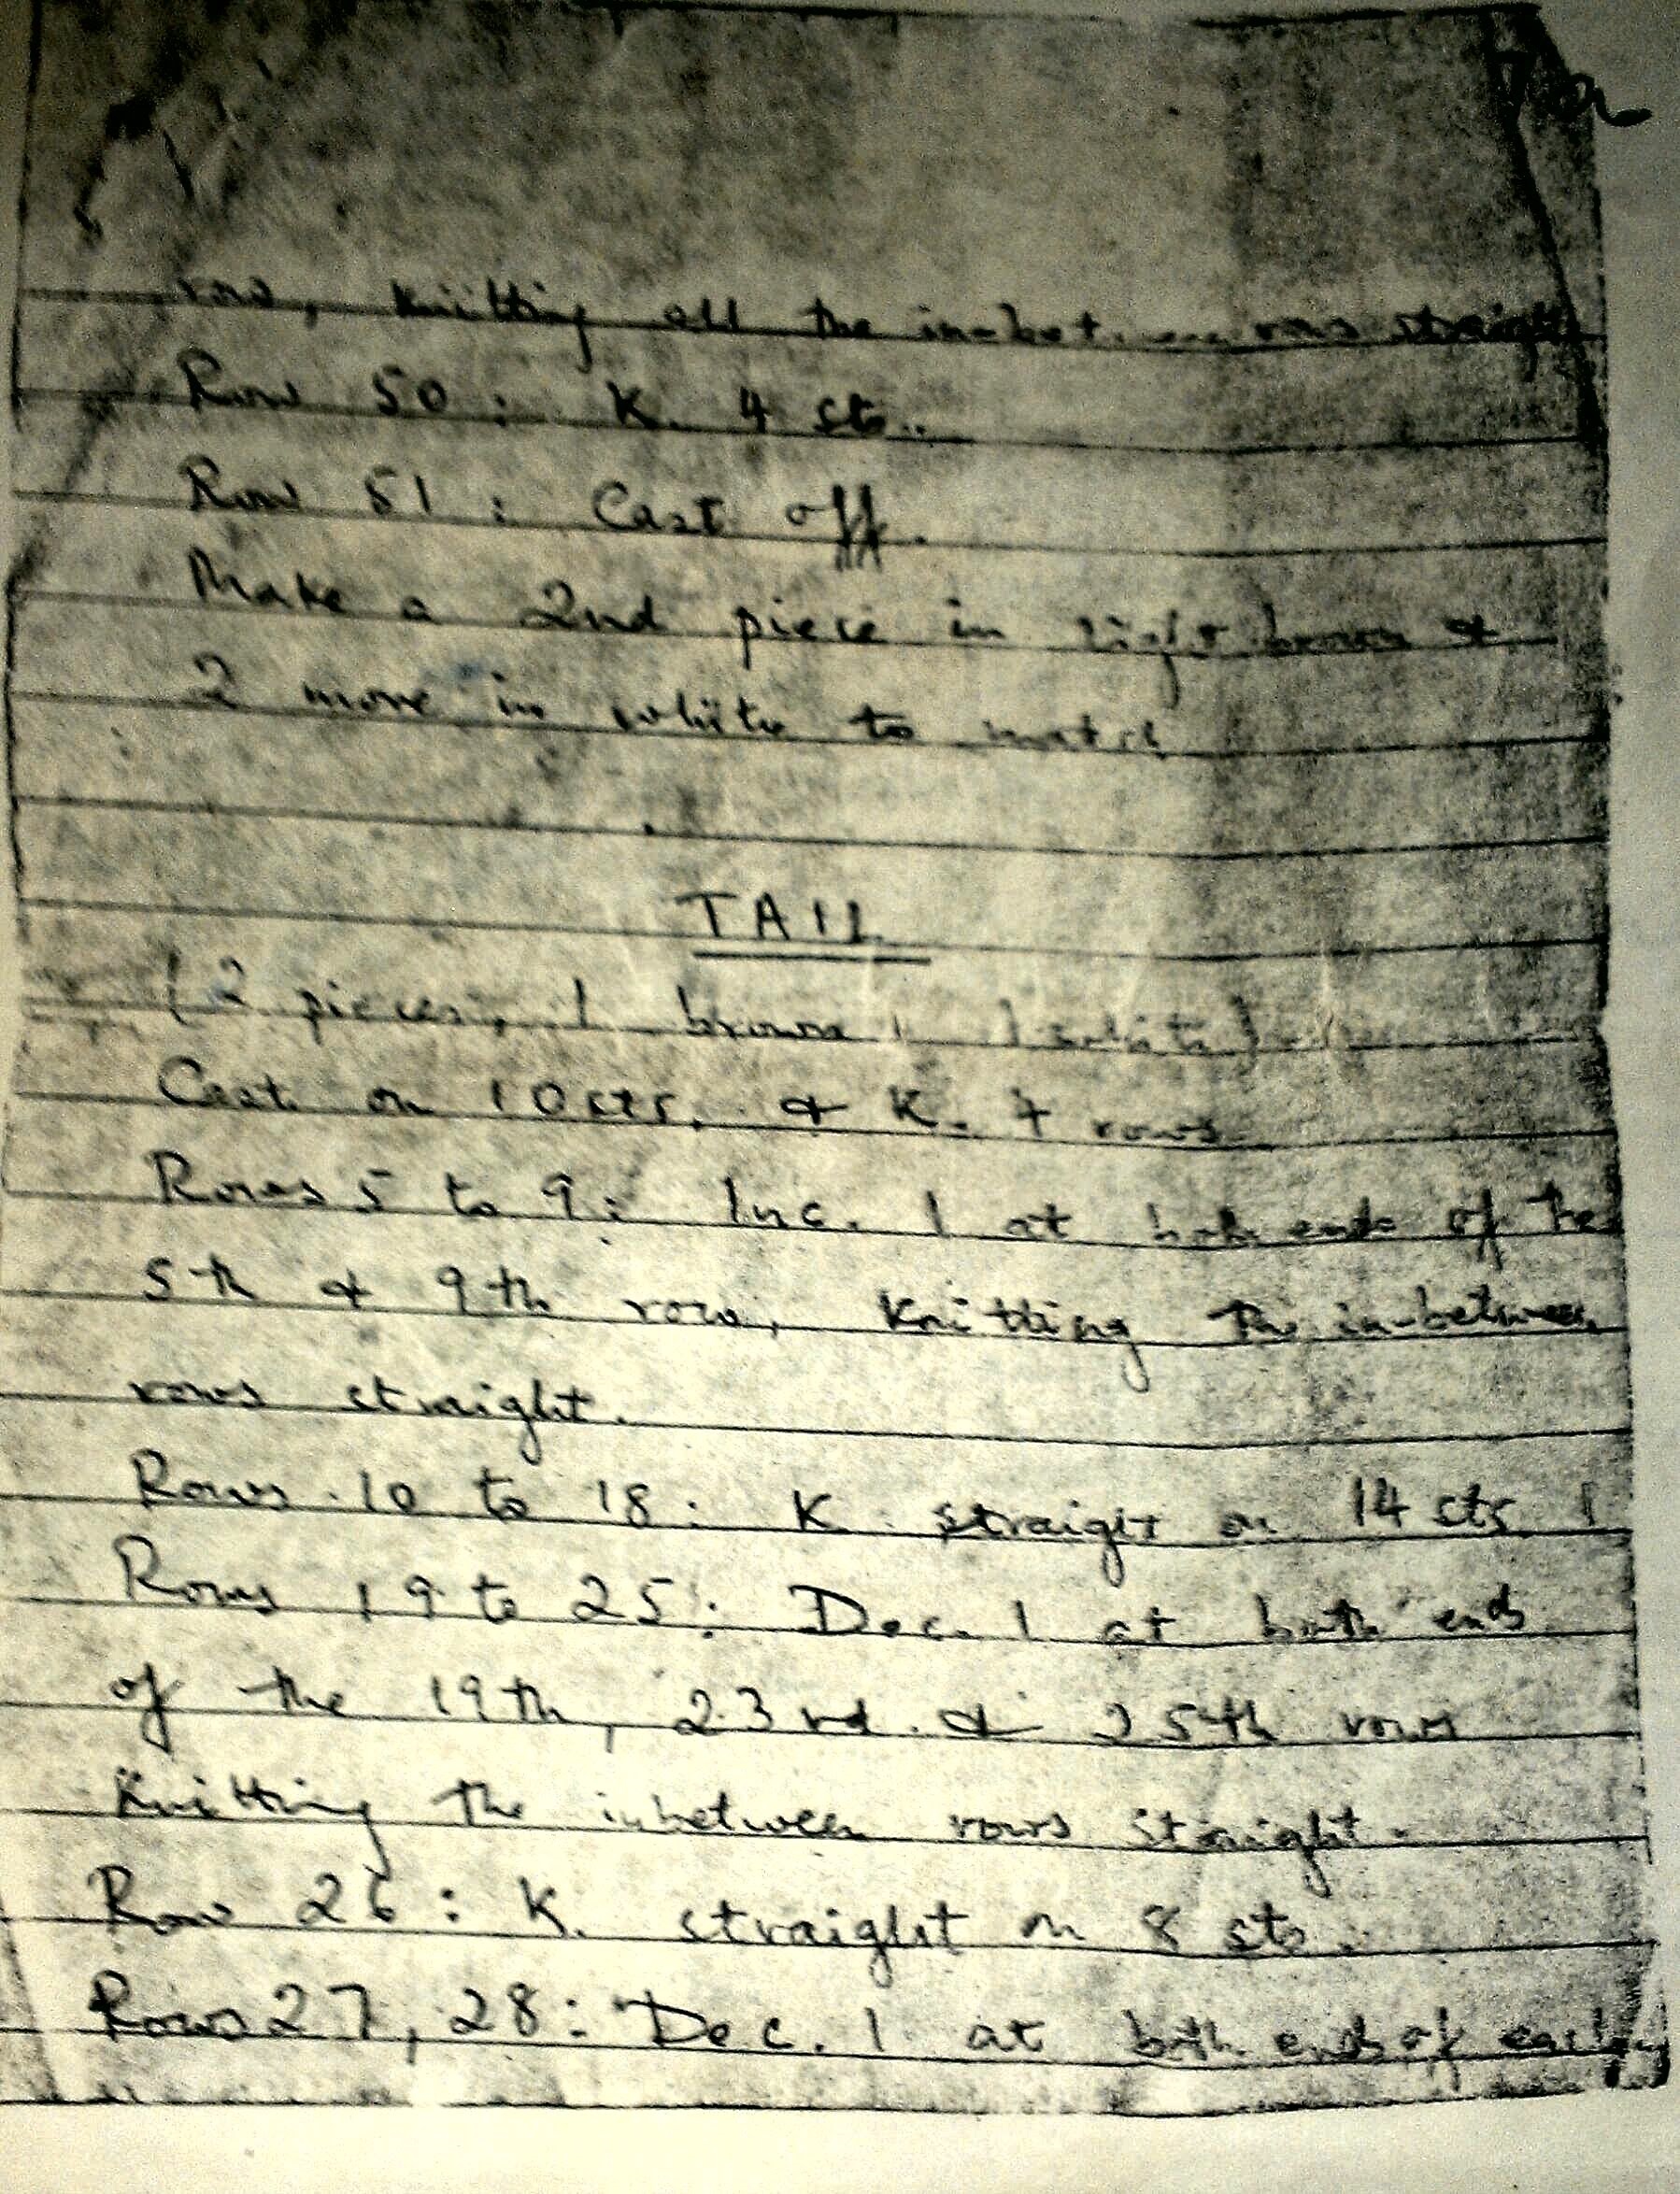 row, knitting all the in-between rows straight
Row 50 : K. 4 sts.
Row 51 : Cast off.
Make a 2nd piece in light brown &
2 more in white to match
TAIL
(2 pieces, 1 brown, 1 white)
Cast on 10 sts. & K. 4 rows
Rows 5 to 9 : Inc. 1 at both ends of the
5th & 9th row, knitting the in-between
rows straight.
Rows 10 to 18 : K. straight on 14 sts
Rows 19 to 25 : Dec. 1 at both ends
of the 19th, 23rd & 25th rows
Knitting the inbetween rows straight.
Row 26 : K. straight on 8 sts.
Rows 27, 28 : Dec. 1 at both ends of each